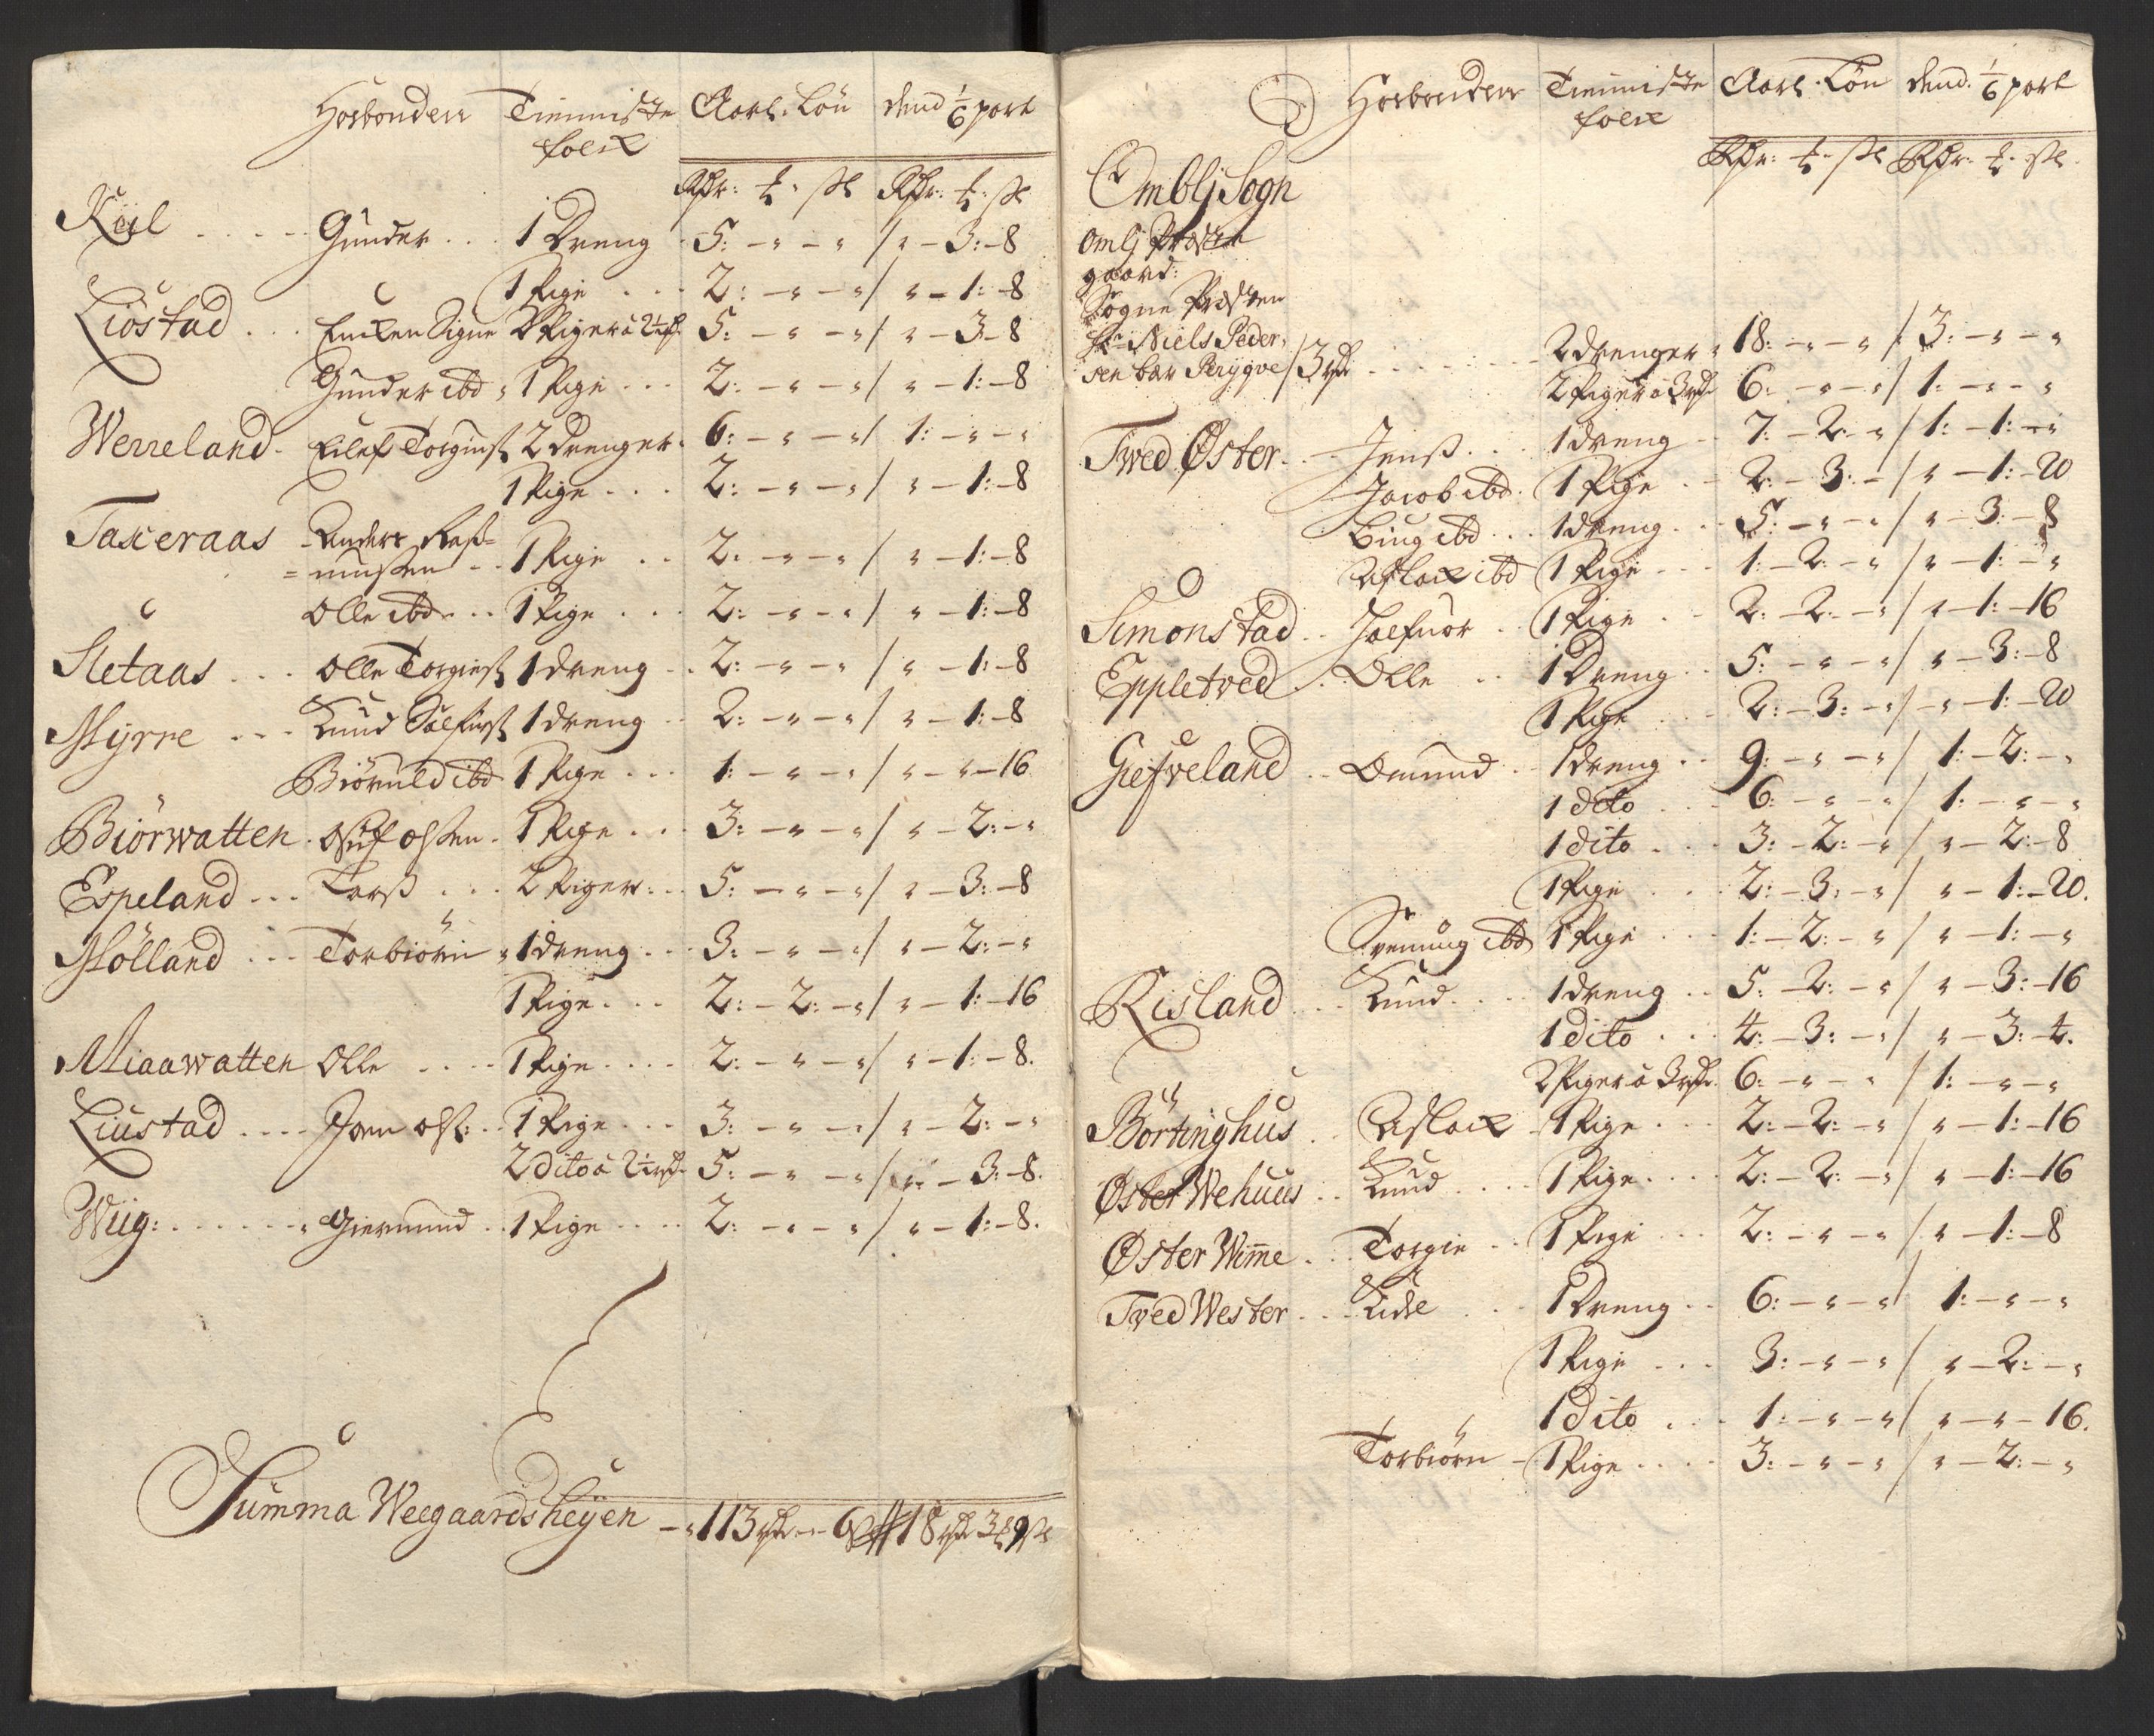 Hosbonder Tienniste Aarl. Løn dend 1/6 part
folck
Rdr: ℔: sk Rdr: ℔: sk
Kiil . . . . Gunder . . . 1 Dreng 5: - " - " / " - 3: - 8
1 Pige . . . 2: - " - " / " - 1: - 8
Liöstad . . . Encken Signe 2 Piger à 2½ rdr 5: - " - " / " - 3 - 8
Gunder ibd " 1 Pige . . . 2: - " - " / " - 1: - 8
Werreland . Eilef Torgiuß: 2 Drenger . 6: - " - " / 1: - " - "
1 Pige . . . 2: - " - " / " - 1: - 8
Taxeraas Anders Raß=
=mußen . . 1 Pige . . 2: - " - " / " - 1: - 8
Olle ibd . . . 1 Pige . . . 2: - " - " / " - 1: - 8
Sletaas . . . Olle Torgieuß 1 dreng . . 2: - " - " / " - 1: - 8
Myrre . . . Knud Salfueß 1 dreng . . 2: - " - " / " - 1: - 8
Biörnuld ibd 1 Pige . . . 1: - " - " / " - " - 16
Biörwatten . Oluf Olßen . 1 Pige . . . 3: - " - " / " - 2: - "
Espeland . . . Larß . . . 2 Piger . . 5: - " - " / " - 3: - 8
Mölland . . . Torbiörn " 1 dreng . . . 3: - " - " / " - 2: - "
1 Pige . . . 2: - 2: - " / " - 1: - 16
Miaawatten Olle . . . . 1 Pige . . . . 2: - " - " / " - 1: - 8.
Liustad . . . . Joen Olß: . . 1 Pige . . . 3: - " - " / " - 2: - "
2 dito à 2½ rdr 5: - " - " / " - 3: - 8.
Wiig: . . . . . . Giermund . . 1 Pige . . . . 2: - " - " / " - 1: - 8.
Summa Weegaardsheÿen - " 113 rdr - " - 18 rdr 3 ℔ 9 sk
Hosbonder Tienniste Aarl. Løn dend. 1/6 part
folck
Rdr: ℔: sk Rdr: ℔: sk
Ombli Sogn
Omli Præste
gaard:
Sogne Præsten
Hr. Niels Peder=
sen bær Brygge / 3 rdr . . . . . . 2 drenger " 18: - " - " / 3: - " - "
2 Piger à 3 rdr 6: - " - " / 1: - " - "
Tved Øster . . Jenß . . . 1 dreng . . 7: - 2: - " / 1: - 1: - "
Jacob ibd . 1 Pige . . 2: - 3: - / " - 1: - 20
Biug ibd . . . 1 dreng . . 5: - " - " / " - 3: - 8
Aslack ibd 1 Pige . . . 1: - 2: - " / " - 1: - "
Simonstad . . Joefuor . . 1 Pige . . 2: - 2: - " / " - 1: - 16
Eppletved . . Olle . . 1 Dreng . . 5: - " - " / " - 3: - 8
1 Pige . . . 2: - 3: - " / - " - 1: - 20
Giefveland . . Omund . . 1 dreng . . 9: - " - " / 1: - 2: - "
1 dito . . . 6: - " - " / 1: - " - "
1 dito . . . 3: - 2: - " / " - 2: - 8
1 Pige . . . 2: - 3: - " / " - 1: - 20.
Svenung ibd 1 Pige . . . 1: - 2: - " / " - 1: - "
Risland . . . Knud . . . . 1 dreng . . 5: - 2: - " / " - 3: - 16
1 dito . . . 4: - 3: - " / " - 3: - 4.
2 Piger à 3 rdr. 6: - " - " / 1: - " - "
Börtinghus . . Aslack . 1 Pige . . . 2: - 2: - " / " - 1: - 16
Øster Wehuus . . Knud . . . . 1 Pige . . . . 2: - 2: - " / " - 1: - 16
Øster Wimme . . . Torgie . . 1 Pige . . . 2: - " - " / " - 1: - 8
Tved Wester . . . Lidle . . . 1 Dreng . . 6: - " - " / 1: - " - "
1 Pige . . . 3: - " - " / " - 2: - "
1 Dito . . . 1: - " - " / " - " - 16.
Torbiörn - 1 Pige . . . . 3: - " - " / " - 2: - "